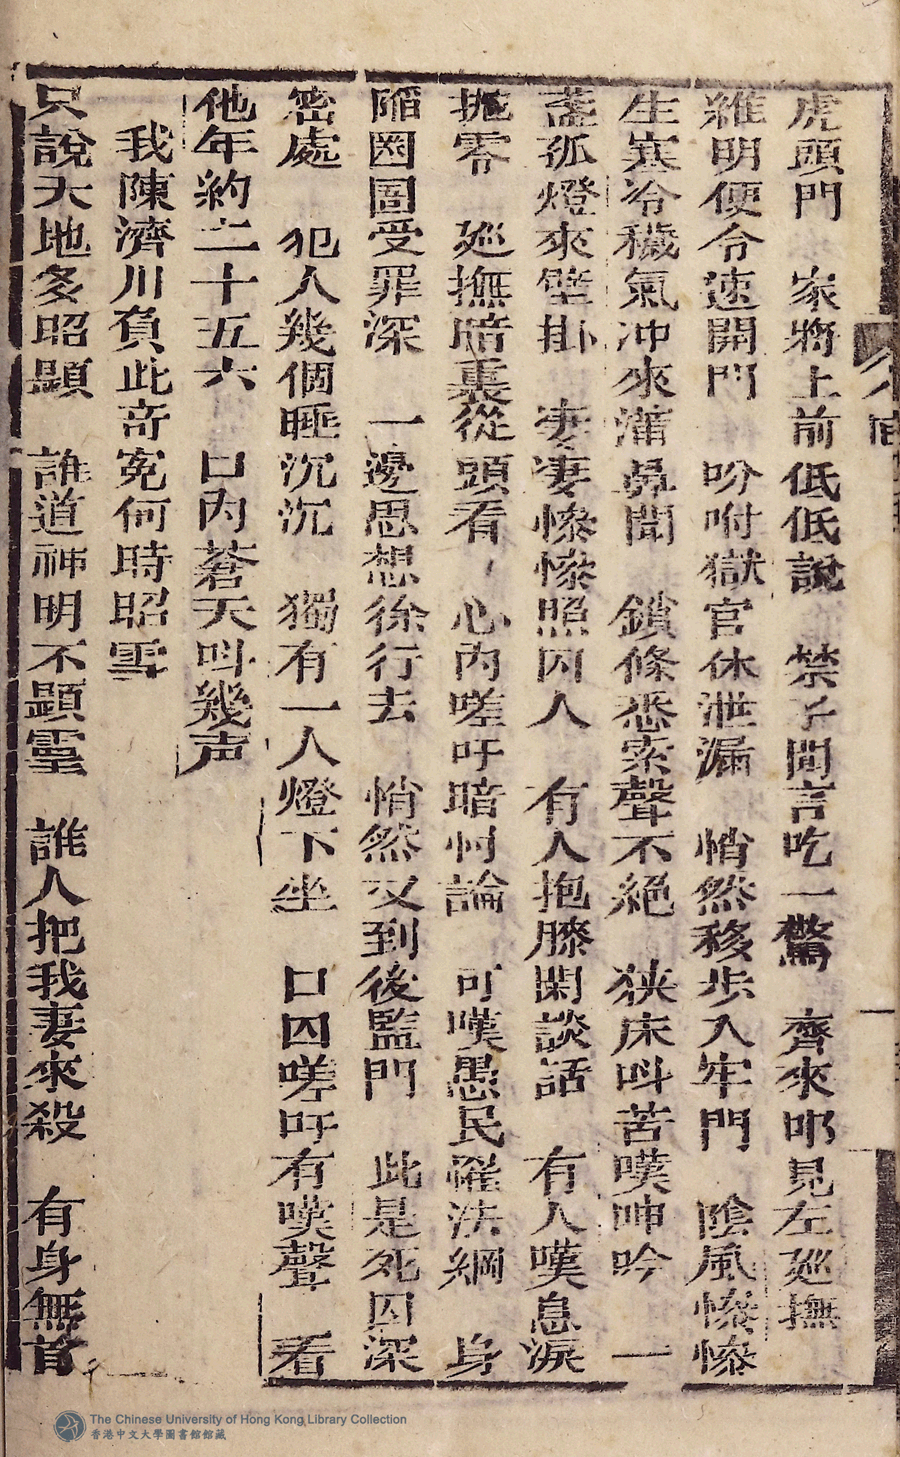 虎頭門　家將上前低低說　禁子聞言吃一驚　齊來叩見左廵撫
維明便令速開門　吩咐獄官休泄漏　悄然移步入牢門　陰風慘慘
生寒冷穢氣冲來灌鼻聞　鎖條悉索聲不絕　狹床呌苦嘆呻吟　一
盞孤燈來壁掛　凄凄慘慘照囚人　有人抱膝閑談話　有人嘆息淚
拋零　廵撫暗裏從頭看　心內嗟吁暗忖論　可嘆愚民罹法網　身
陷囹圄受罪深　一邊思想徐行去　悄然又到後監門　此是死囚深
密處　犯人幾個睡沉沉　獨有一人燈下坐　口囚嗟吁有嘆聲　看
他年約二十五六　口內蒼天呌幾声
我陳濟川負此奇冤何時昭雪
只說天地多昭顯　誰道神明不顕靈　誰人把我妻來殺　有身無首
The Chinese University of Hong Kong Library Collection
香港中文大學圖書館館藏